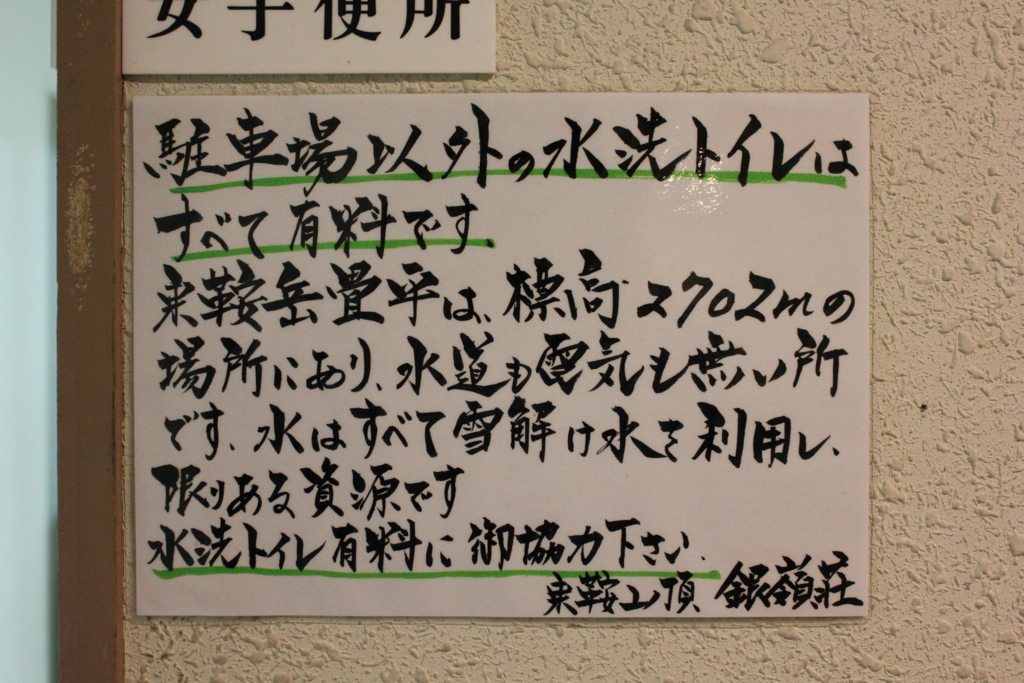 女子便所
駐車場以外の水洗トイレは
すべて有料です、
乗鞍岳畳平は、標高2702mの
場所にあり、水道も電気も無い所
です、水はすべて雪解け水を利用し、
限りある資源です
水洗トイレ有料に御協力下さい、
乗鞍山頂 銀嶺荘